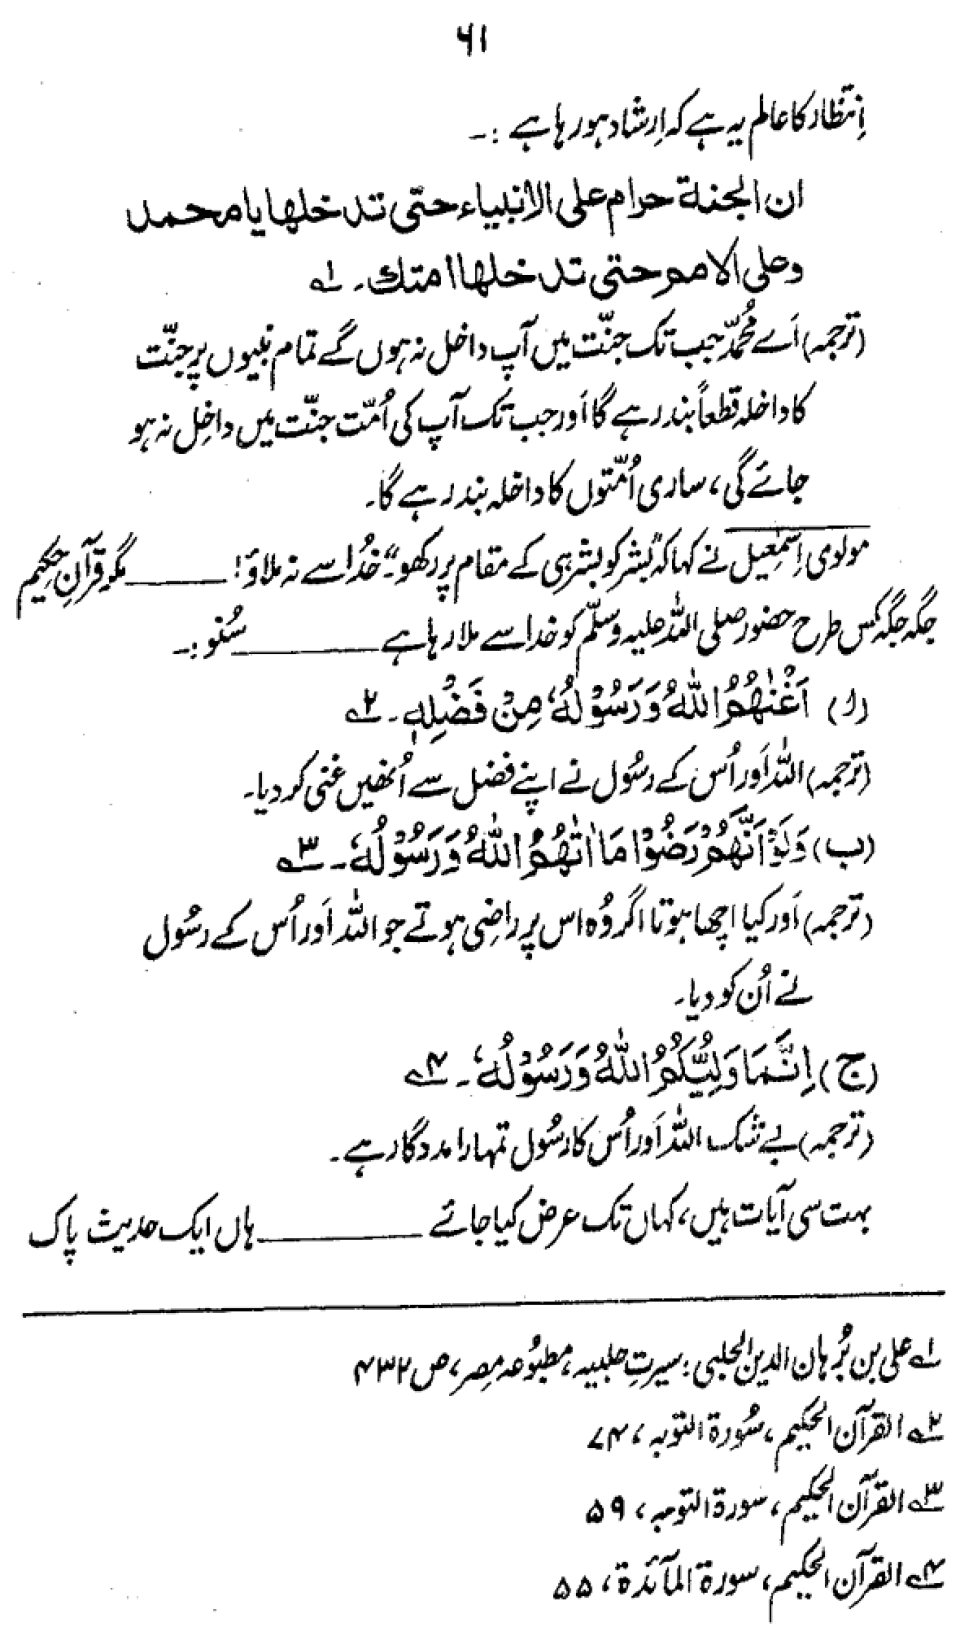 ۶۱
اِنتظار کا عالم یہ ہے کہ اِرشاد ہو رہا ہے :۔
ان الجنة حرام علی الانبیاء حتّی تدخلها یا محمد
وعلی الامم حتی تدخلها امتك۔ ۱؎
(ترجمہ) اَے محمّدؐ جب تک جنّت میں آپ داخل نہ ہوں گے تمام نبیوں پر جنّت
کا داخلہ قطعاً بند رہے گا اَور جب تک آپ کی اُمّت جنّت میں داخِل نہ ہو
جائے گی، ساری اُمّتوں کا داخلہ بند رہے گا۔
مولوی اِسمٰعیل نے کہا کہ "بشر کو بشر ہی کے مقام پر رکھو"۔ خُدا سے نہ ملاؤ! ـــــــــ مگر قرآنِ حکیم
جگہ جگہ کس طرح حضور صلی اللہ علیہ وسلّم کو خدا سے ملا رہا ہے ـــــــــ سُنو :۔
(ا) اَغْنٰهُمُ اللّٰهُ وَرَسُوْلُهٗ مِنْ فَضْلِهٖ۔ ۲؎
(ترجمہ) اللہ اَور اُس کے رسُول نے اپنے فضل سے اُنھیں غنی کر دیا۔
(ب) وَلَوْ اَنَّهُمْ رَضُوْا مَا اٰتٰهُمُ اللّٰهُ وَرَسُوْلُهٗ۔ ۳؎
(ترجمہ) اَور کیا اچھا ہوتا اگر وُہ اس پر راضِی ہوتے جو اللہ اَور اُس کے رسُول
نے اُن کو دیا۔
(ج) اِنَّمَا وَلِیُّکُمُ اللّٰهُ وَرَسُوْلُهٗ۔ ۴؎
(ترجمہ) بے شک اللہ اَور اُس کا رسُول تمہارا مددگار ہے۔
بہت سی آیات ہیں، کہاں تک عرض کیا جائے ـــــــــ ہاں ایک حدیث پاک
۱؎ علی بن بُرہان الدین الحلبی: سیرتِ حلبیہ، مطبُوعہ مِصر، ص ۴۳۲
۲؎ القرآن الحکیم، سُورۃ التوبہ، ۷۴
۳؎ القرآن الحکیم، سورۃ التوبہ، ۵۹
۴؎ القرآن الحکیم، سورۃ المآئدۃ، ۵۵